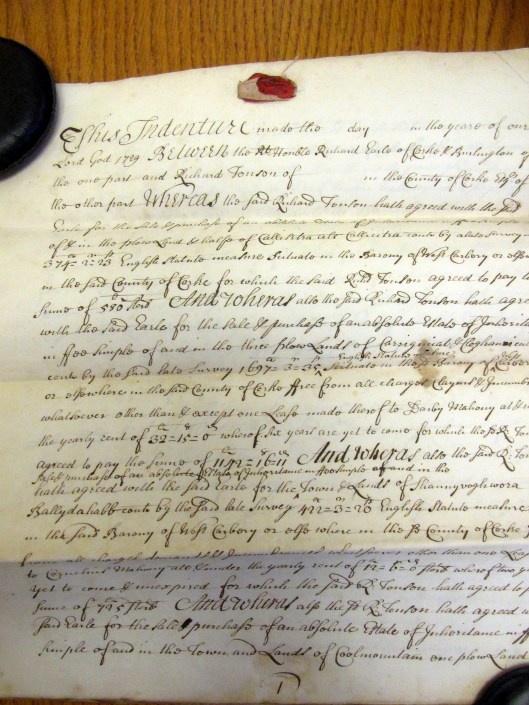 This Indenture made the day in the yeare of our
Lord God 1729 Between the Rt Honble Richard Earle of Corke & Burlington of
the one part and Richard Tonson of in the County of Corke Esqr of
the other part Whereas the said Richard Tonson hath agreed with the said
Earle for the Sale & purchase of an absolute
of & in the plow Land & halfe of Callitrea als Callectra conts by late Survey
374 = 2 = 23 English Statute measure Scituate in the Barony of West Carbery or else
in the said County of Corke for which the said Richd Tonson agreed to pay the
Sume of 550 sters And wheras also the said Richard Tonson hath agreed
with the said Earle for the Sale & purchase of an absolute Estate of Inherit
in ffee simple of and in the three plow Lands of Carrigmat & Coghan
conts by the said late Survey 1697 = 3 = 35 English Statute measure Scituate in the sd Barony of
or elsewhere in the said County of Corke ffree from all charges Clayms &
whatsoever other than & except one Lease made thereof to Darby Mahony at &
the yearly rent of 32 = 15 = 0 whereof six years are yet to come for which the sd R Ton
agreed to pay the Sume of 1142 = 16 = 11 And wheras also the said R Ton
Sale & purchase of an absolute Estate of Inheritance in ffee simple of and in the
hath agreed with the said Earle for the Town & Lands of Skannyvoghwora
Ballydahabb conts by the said late Survey 422 = 3 = 20 English Statute measure
in the said Barony of West Carbery or else where in the sd County of Corke
from all charges
to Cornelius Mahony at & under the yearly rent of 12 = 6 = 0 sters whereof two
yet to come & unexpired for which the said R Tonson hath agreed to
Sume of 725 sters And wheras also the sd R Tonson hath agreed
said Earle for the Sale & purchase of an absolute Estate of Inheritance in ff
simple of and in the Town and Lands of Coolmountain one plow Land